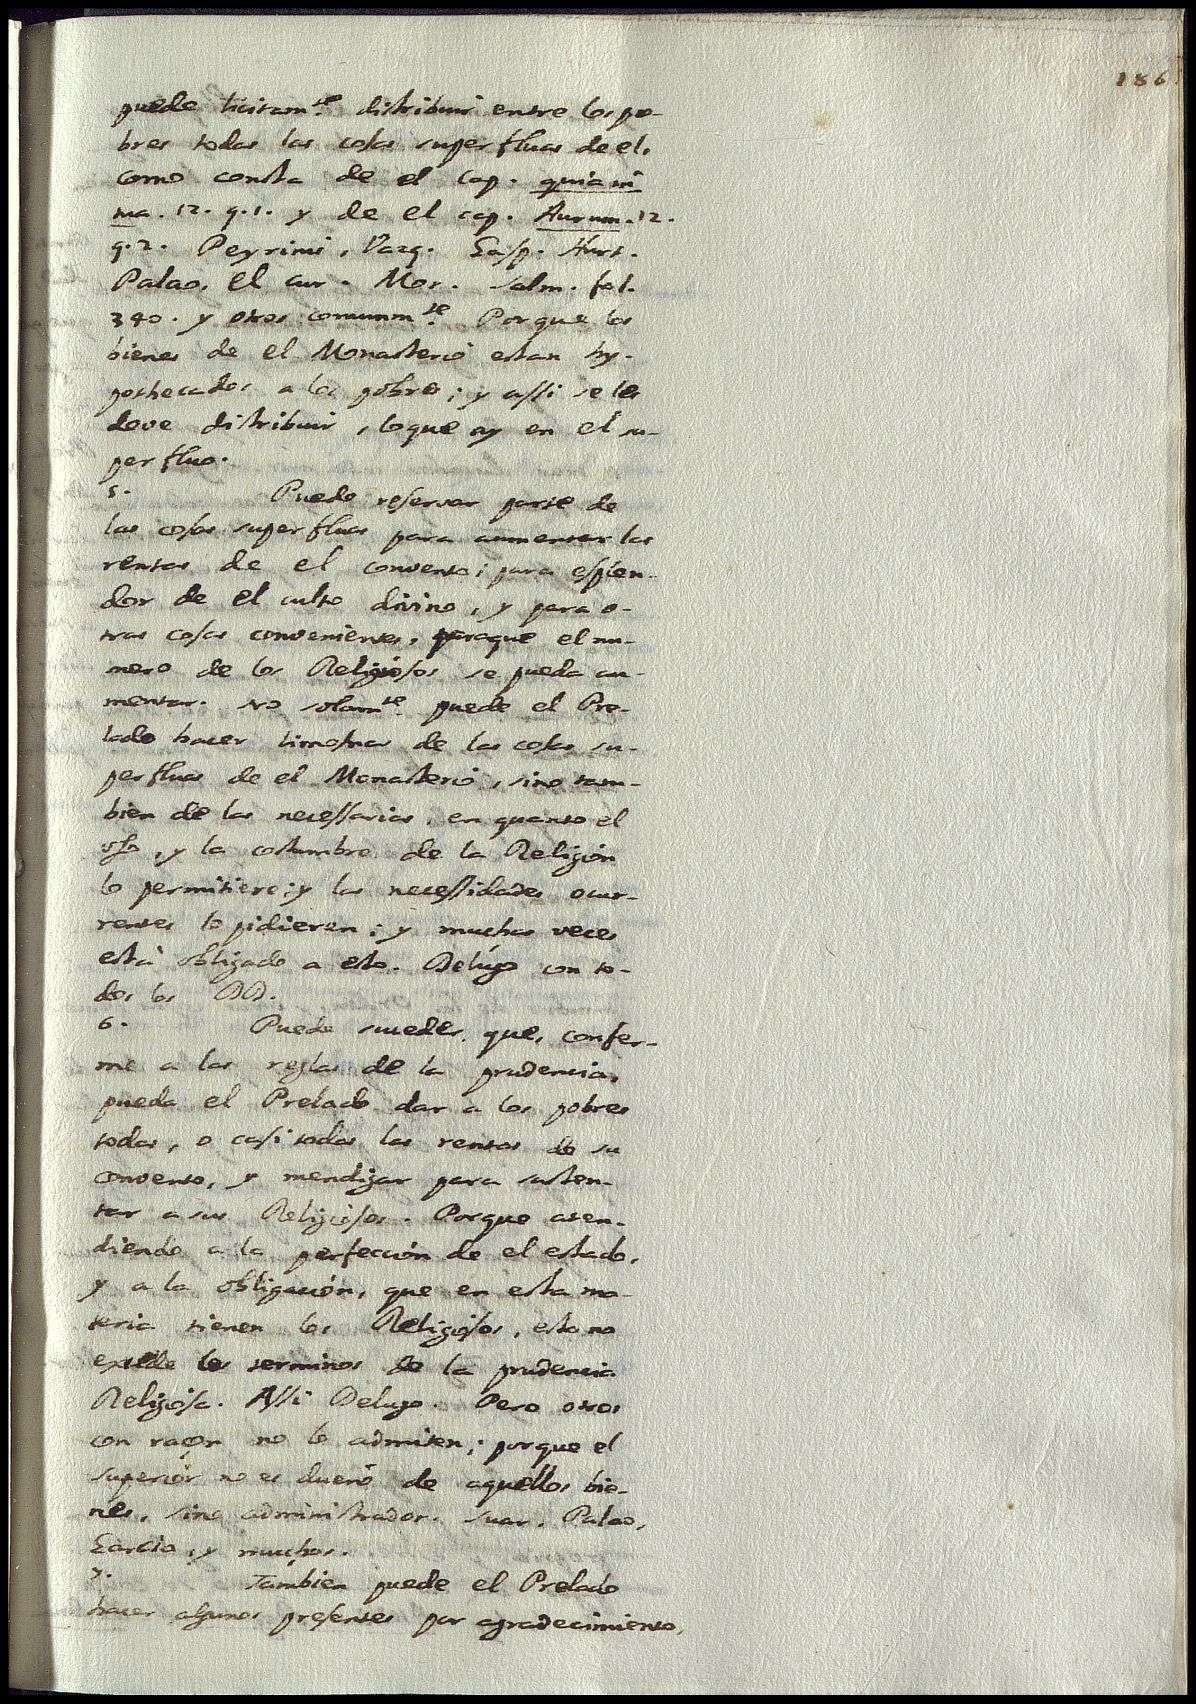 186
puede licitam.te distribuir entre los po-
bres todas las cosas superfluas de el,
como consta de el Cap. quia ni
ma. 12. q. 1. y de el cap. Aurum. 12.
q. 2. Peyrinis, Vazq. Gasp. Hurt.
Palao, el cur. Mor. salm. fol.
340. y otros comunm.te Porque los
bienes de el Monasterio estan hy-
pothecados a los pobres; y assi se les
deve distribuir, loque ay en el su-
perfluo.
5. Puede reservar parte de
las cosas superfluas para aumentar las
rentas de el convento; para esplen-
dor de el culto divino, y para o-
tras cosas convenientes, paraque el nu-
mero de los Religiosos se pueda au-
mentar. No solam.te puede el Pre-
lado hacer limosnas de las cosas su-
perfluas de el Monasterio, sino tam-
bien de las necessarias, en quanto el
uso, y la costumbre de la Religión
lo permitiere; y las necessidades ocur-
rentes lo pidieren; y muchas veces
está obligado a esto. Delugo con to-
dos los DD.
6. Puede suceder, que, confor-
me a las reglas de la prudencia,
pueda el Prelado dar a los pobres
todas, o casi todas las rentas de su
convento, y mendigar para susten-
tar a sus Religiosos. Porque aten-
diendo a la perfección de el estado,
y a la obligación, que en esta ma-
teria tienen los Religiosos, esto no
excede los terminos de la prudencia
Religiosa. Assi Delugo. Pero otros
con raçon no lo admiten; porque el
superiór no es dueño de aquellos bie-
nes, sino administrador. Suar. Palao,
Garcia, y muchos.
7. Tambien puede el Prelado
hacer algunos presentes por agradecimiento,